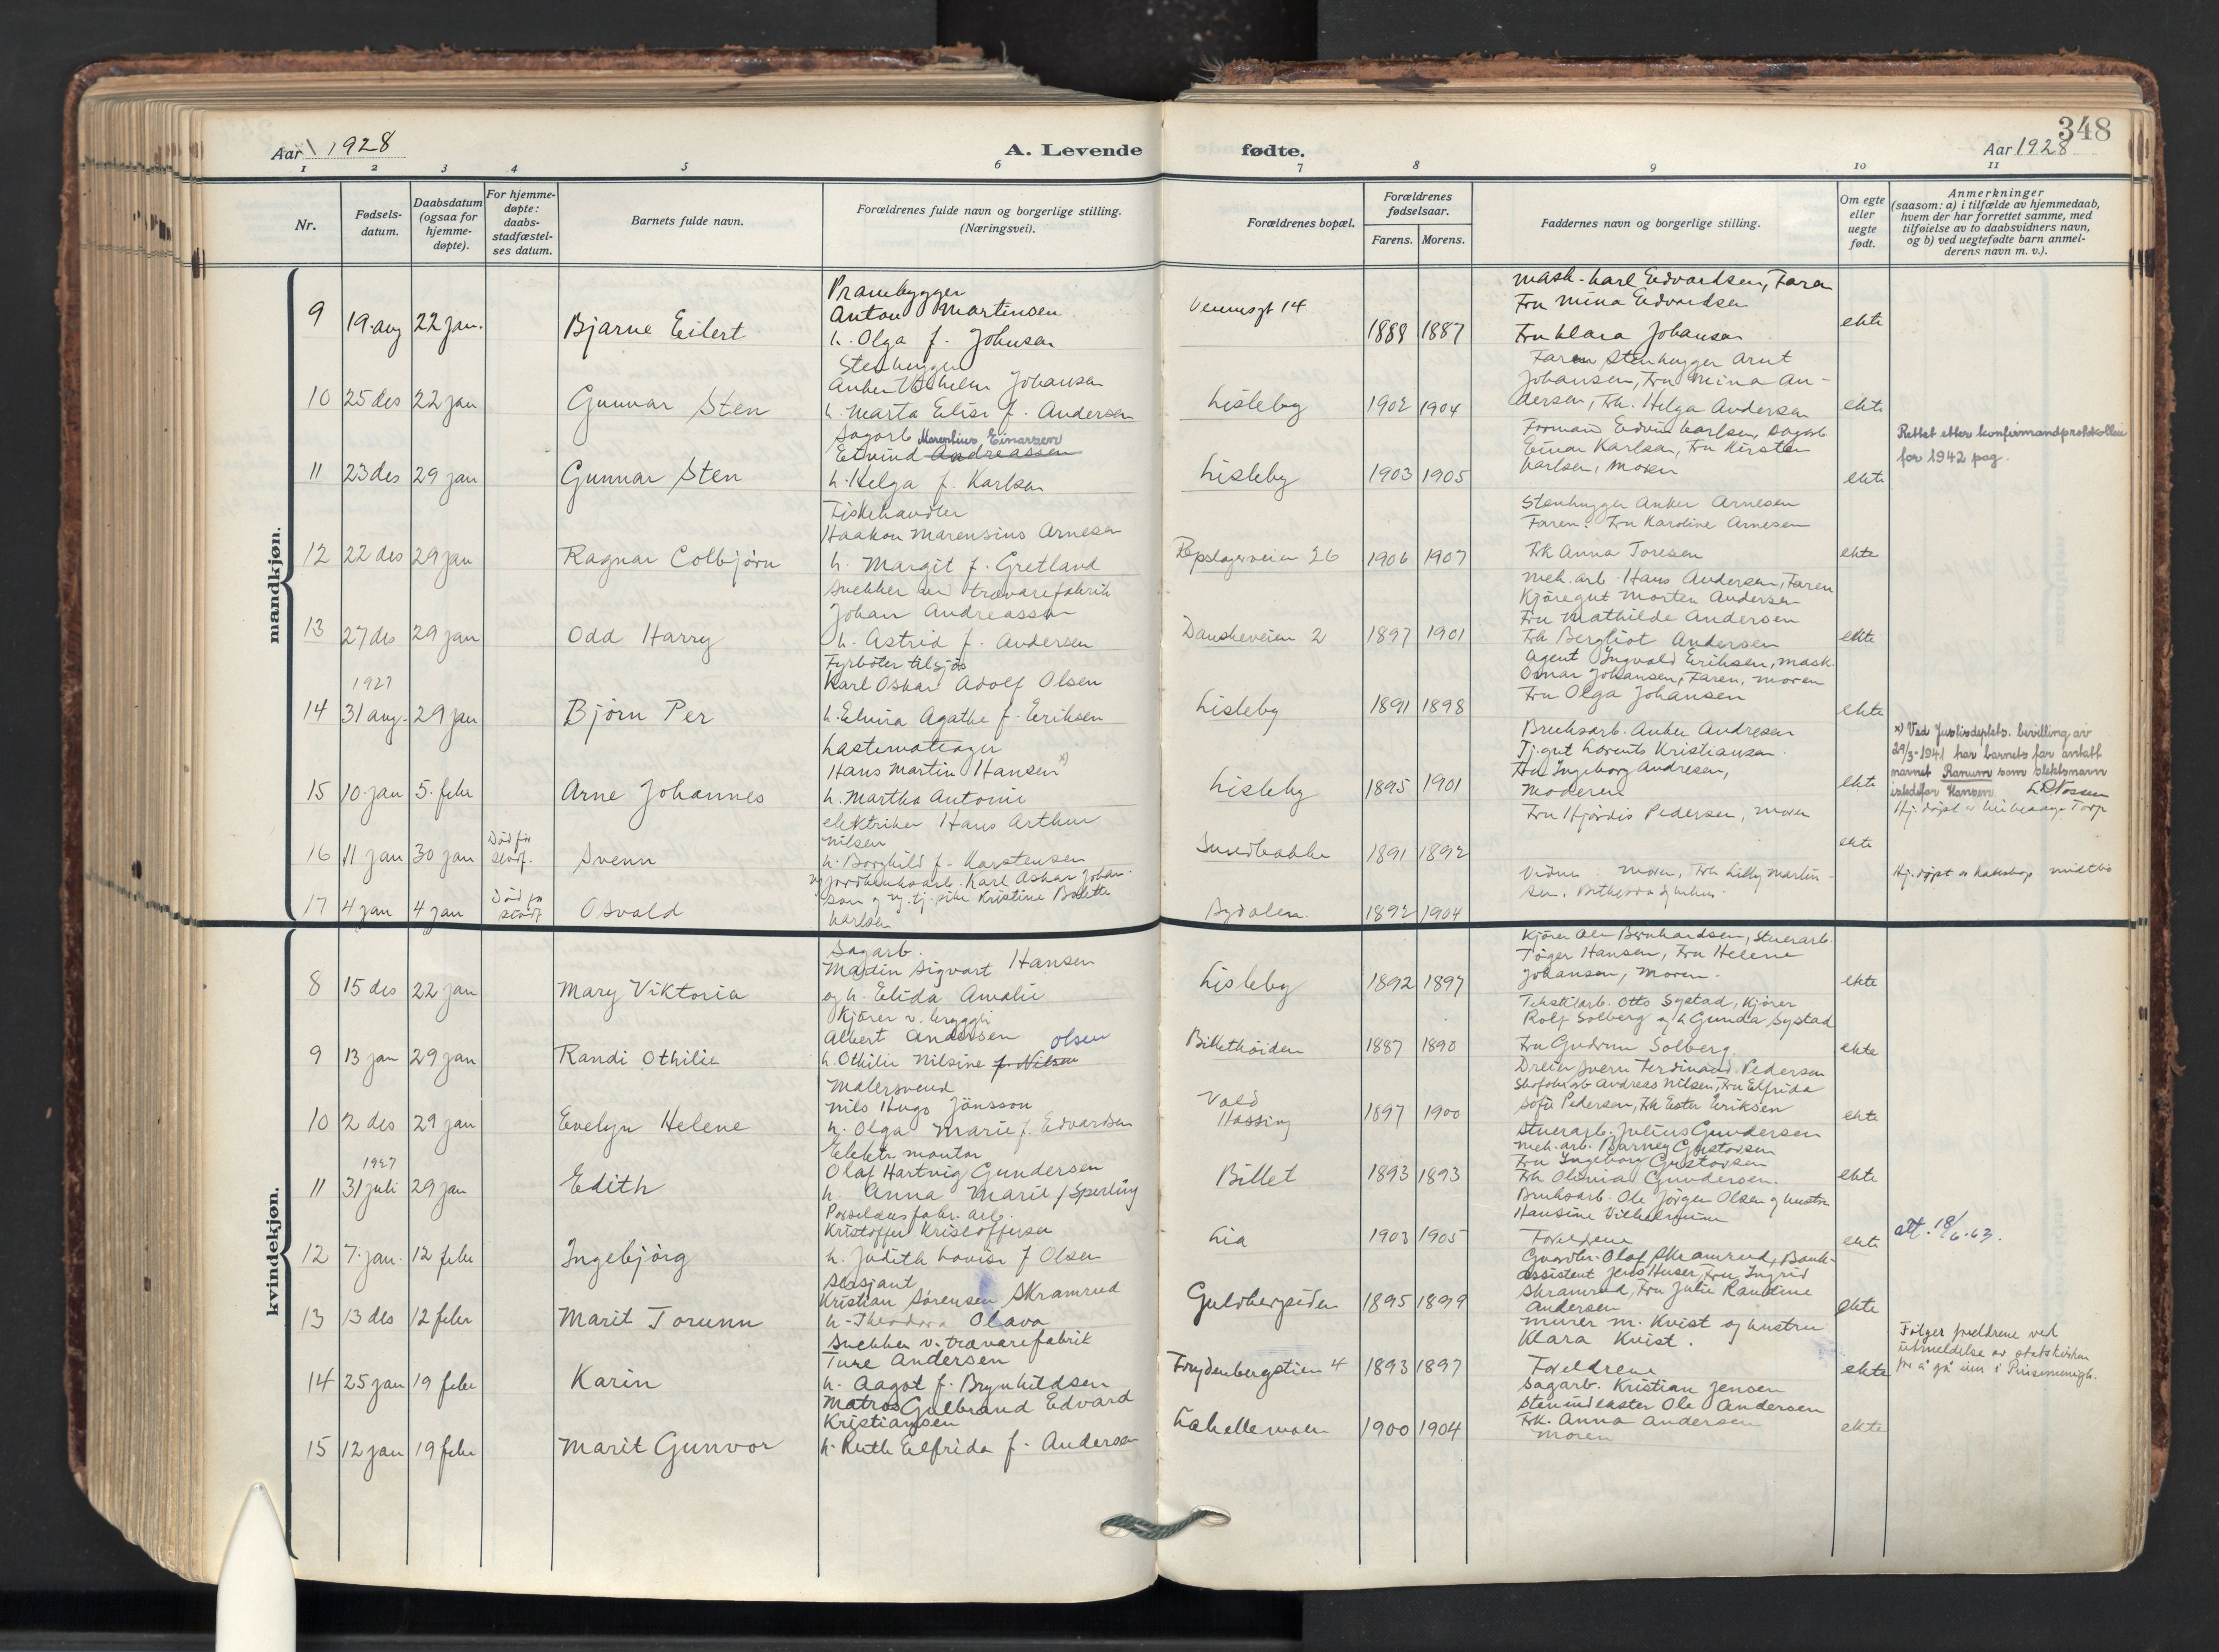 Aar 1928
A. Levende
fødte.
348
Aar 1928
1 2 3 4 5 6 7 8 9 10 11
Nr.
Fødsels-
datum.
Daabsdatum
(ogsaa for
hjemme-
døpte).
For hjemme-
døpte:
daabs-
stadfæstel-
ses datum.
Barnets fulde navn.
Forældrenes fulde navn og borgerlige stilling.
(Næringsvei).
Forældrenes bopæl.
Forældrenes
fødselsaar.
Farens. Morens.
Faddernes navn og borgerlige stilling.
Om egte
eller
uegte
født.
Anmerkninger
(saasom: a) i tilfælde av hjemmedaab,
hvem der har forrettet samme, med
tilføielse av to daabsvidners navn,
og b) ved uegtefødte barn anmel-
derens navn m. v.).
mandkjøn.
9 19. aug 22 jan. Bjarne Eilert
Prambygger
Anton Martinsen
h. Olga f. Johnsen
Vennsgt 14
1888 1887
Mask. Karl Edvardsen, Faren
Fru Mina Edvardsen
Fru Klara Johansen
ekte
10 25 des 22 jan Gunnar Sten
Stenhugger
Anker Vilhelm Johansen
h. Marta Elise f. Andersen
Lisleby
1902 1904
Faren Stenhugger Arnt
Johansen, Fru Mina An-
dersen, Frk. Helga Andersen
ekte
11 23 des 29 jan Gunnar Sten
Sagarb Marenlius Einarsen
Eivind Andreassen
h. Helga f. Karlsen
Lisleby
1903 1905
Formand Edvin Karlsen, Sagarb
Einar Karlsen, Fru Kirsten
Karlsen, Moren
ekte
Rettet etter konfirmandprotokollen
for 1942 pag.
12 22 des 29 jan Ragnar Colbjørn
Fiskehandler
Haakon Marensius Arnesen
h. Margit f. Gretland
Repslagerveien 26
1906 1907
Stenhugger Anker Arnesen
Faren. Fru Karoline Arnesen
Frk Anna Toresen
ekte
13 27 des 29 jan Odd Harry
Snekker ved trævarefabrik
Johan Andreassen
h. Astrid f. Andersen
Danskeveien 2
1897 1901
Mek. arb. Hans Andersen, Faren
Kjøregut Morten Andersen
Fru Mathilde Andersen
Frk Bergliot Andersen
ekte
14 1927 31 aug. 29 jan Bjørn Per
Fyrbøter tilsjøs
Karl Oskar Adolf Olsen
h. Elvira Agathe f. Eriksen
Lisleby
1891 1898
Agent Ingvald Eriksen, Mask.
Osmar Johansen, Faren, Moren
Fru Olga Johansen
ekte
15 10. jan 5. febr Arne Johannes
Lastemottager
Hans Martin Hansen x)
h. Martha Antonie
Lisleby
1895 1901
Bruksarb. Anker Andresen
Tj. gut Lorents Kristiansen.
Fru Ingeborg Andresen,
Moderen
ekte
x) Ved Justisdeptets. bevilling av
29/3-1941 har barnets far antatt
navnet Ranum som slektsnavn
istedefor Hansen.
16 11 jan 30 jan Død før stadf. Svenn
elektriker Hans Arthur
Nilsen
h. Borghild f. Karstensen
Smedbakke
1891 1892
Fru Hjørdis Pedersen, Moren
ekte
17 4 jan 4 jan Død før stadf. Osvald
ug jordbruksarb. Karl Oskar Johan-
sen og ug. tj. pike Kristine Bolette
Karlsen
Bydalen.
1892 1904
Vidner: Moren, Frk Lilly Martin-
sen,
kvindekjøn.
8 15 des 22 jan Mary Viktoria
Sagarb.
Martin Sigvart Hansen
og h. Elida Amalie
Lisleby
1892 1897
Kjører Ole Bernhardsen, Stuerarb.
Tørger Hansen, Fru Helene
Johansen, Moren.
ekte
9 13 jan 29 jan Randi Othilie
Kjører v. bryggeri
Albert Andersen olsen
h. Othilie Nilsine f. Nilsen
Billethøiden
1887 1890
Tekstilarb. Otto Systad, Kjører
Rolf Solberg og h Gunda Systad
Fru Gudrun Solberg.
ekte
10 2 des 29 jan Evelyn Helene
Malersvend
Nils Hugo Jönsson
h. Olga Marie f. Edvardsen
Vald
Hassing
1897 1900
Dreier Sverre Ferdinand Pedersen
Skofabrarb Andreas Nilsen, Fru Elfrida
Sofie Pedersen, Frk Ester Eriksen
ekte
11 1927 31 juli 29 jan Edith
Elektr. montør
Olaf Hartvig Gundersen
h. Anna Marie f Sperling
Billet
1893 1893
Stuerarb. Julius Gundersen
Mek. arb. Barney Gustavsen
Fru Ingeborg Gustavsen
Frk Olivia Gundersen.
ekte
12 7. jan. 12 febr Ingebjørg
Porselænsfabr. arb.
Kristoffer Kristoffersen
h. Judith Lovise f Olsen
Lia
1903 1905
Bruksarb. Ole Jørgen Olsen og hustru
Hansine Vilhelmine
Foreldrene
ekte
att. 18/6. 63.
13 13 des 12 febr Marit Torunn
Sersjant
Kristian Sørensen Skramrud
h. Theodora Olava
Guldbergsiden
1895 1899
Gaardbr. Olaf Skramrud, Bank-
assistent Jens Huser, Fru Ingrid
Skramrud, Fru Julie Randine
Andersen
ekte
14 25 jan 19 febr Karin
Snekker v. trævarefabrik
Ture Andersen
h. Aagot f. Brynhildsen
Frydenbergstien 4
1893 1897
Murer M. Kvist og hustru
Klara Kvist.
Foreldrene
ekte
Følger foreldrene ved
utmeldelse av statskirken
for å gå inn i Pinsemenigh.
15 12 jan 19 febr Marit Gunvor
Matros Gulbrand Edvard
Kristiansen
h. Ruth Elfrida f. Andersen
Lahellemoen
1900 1904
Sagarb. Kristian Jensen
Stenindkaster Ole Andersen
Frk. Anna Andersen
Moren
ekte